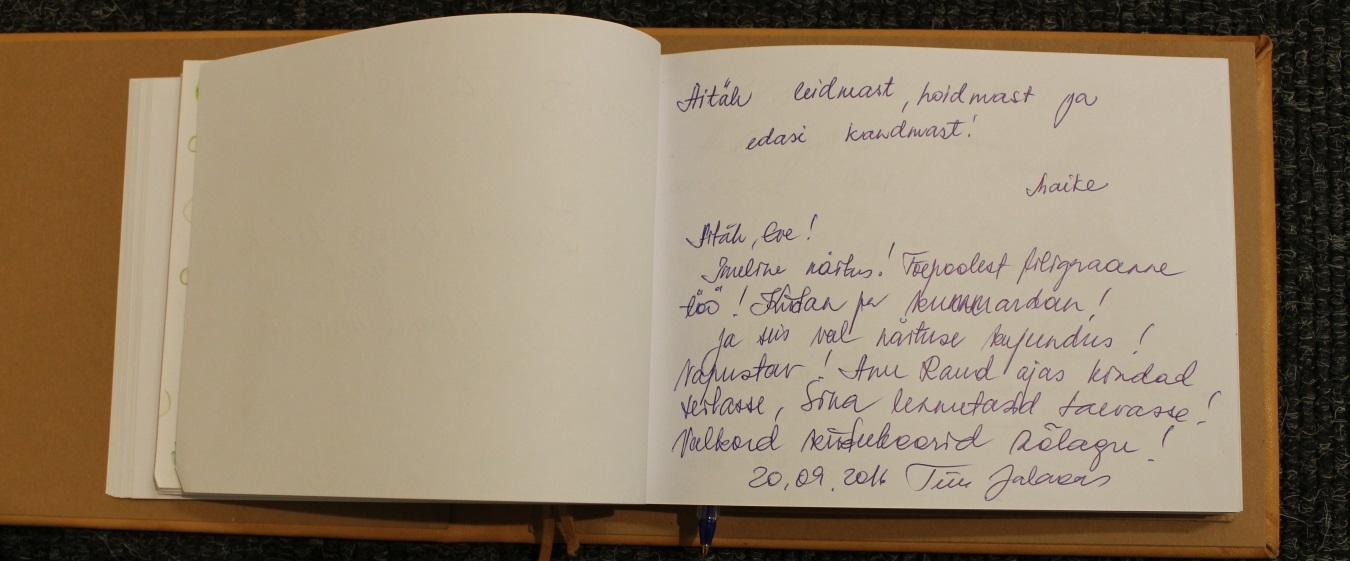 Aitäh leidmast, hoidmast ja
edasi kandmast!
Maike
Aitäh, Eve!
Imeline näitus! Tõepoolest filigraanne
töö! Kiidan ja kummardan!
Ja siis veel näituse kujundus!
Vapustav! Anu Raud ajas kindad
seilasse, Sina lennutasid taevasse!
Valkord sõlagu!
20.09.2016 Tiiu Jalakas